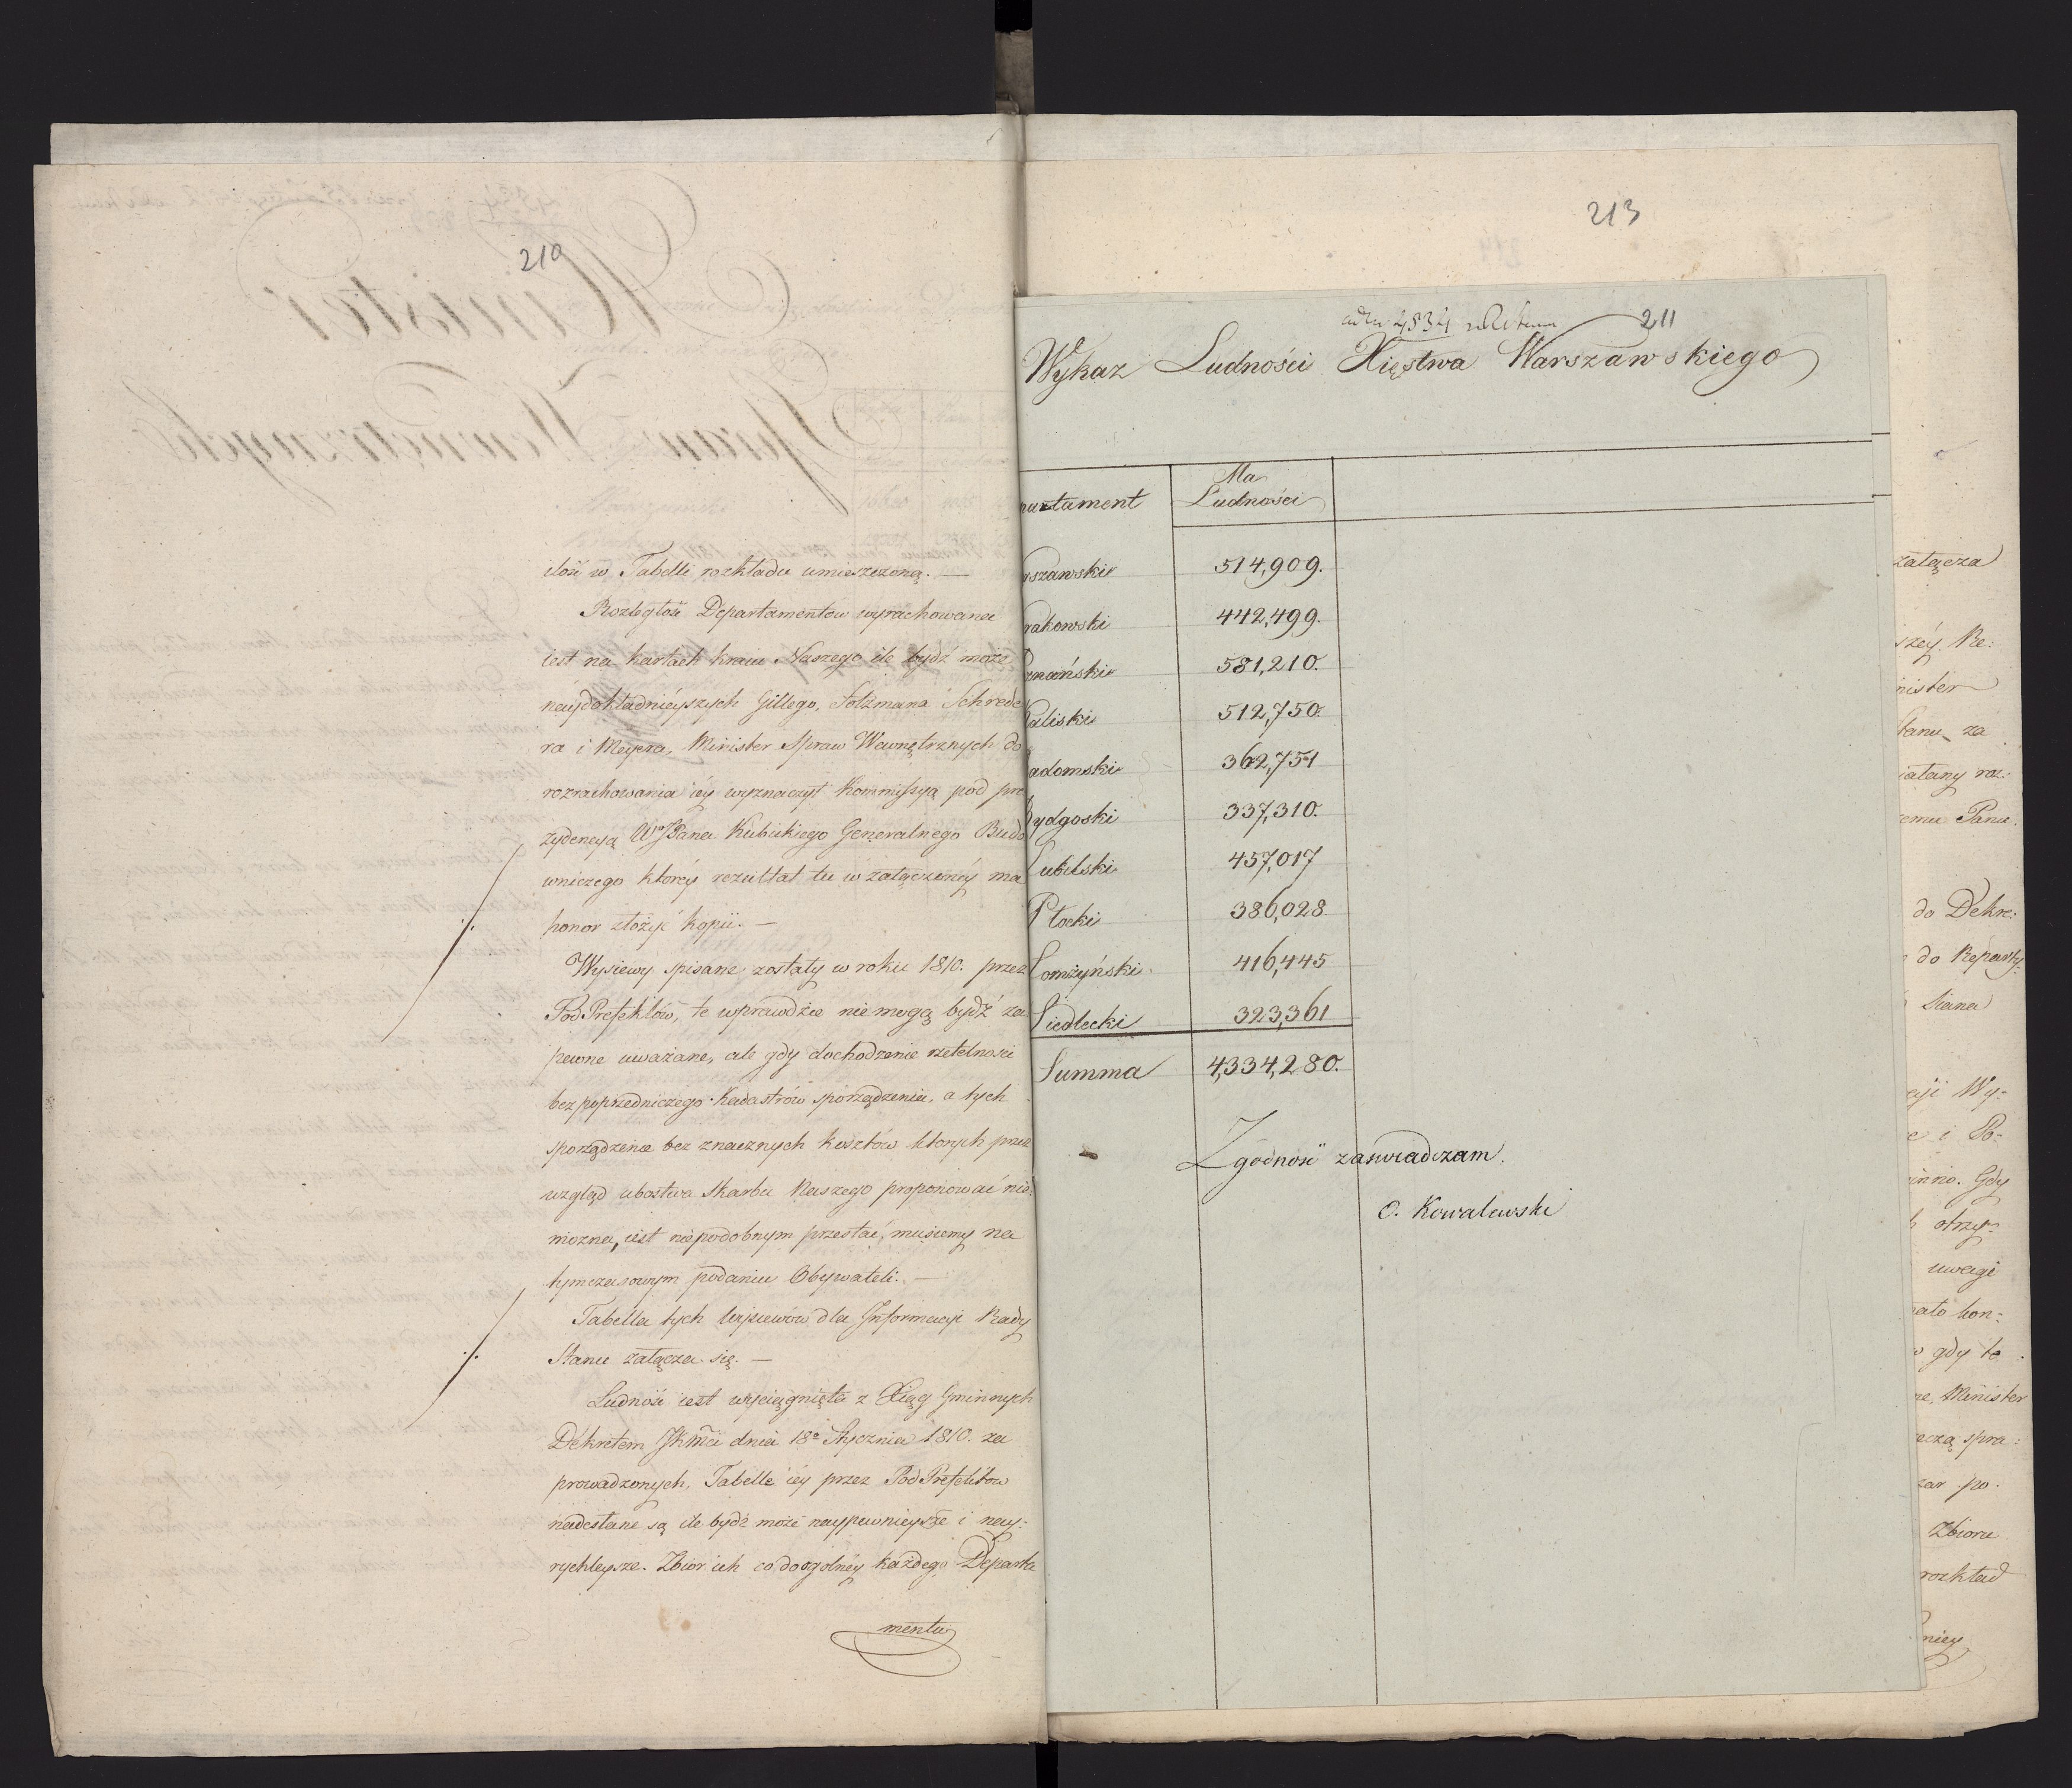 210
ilość w Tabelli rozkładu umieszczoną. —
Rozległość Departamentow wyrachowana
iest na kartach kraiu Naszego ile bydź może
naydokładnieyszych Gillego, Sotzmana Schrede
ra i Meyera, Minister Spraw Wewnętrznych do
rozrachowania iéy wyznaczył Kommissyą pod pre
zydencyą WJPana Kubickiego Generalnego Budo
wniczego któréy rezultat tu w załączonéy ma
honor złożyć kopii. —
Wysiewy spisane zostały w roku 1810. przez
PodPrefektów, te wprawdzie nie mogą bydź za
pewne uważane, ale gdy dochodzenie rzetelności
bez poprzedniczego Kadastrów sporządzenia, a tych
sporządzenie bez znacznych kosztów których przez
wzgląd ubostwa Skarbu Naszego proponować nie
można, iest niepodobnym przestać, musiemy na
tymczasowym podaniu Obywateli. —
Tabella tych Wysiewów dla Informacyi Rady
Stanu załącza się. —
Ludność iest wyciągnięta z Xiąg Gminnych
Dekretem JKMci dnia 18º Stycznia 1810. za
prowadzonych, Tabelle iéy przez PodPrefektow
nadesłane są ile bydź może naypewnieysze i nay:
rychleysze. Zbior ich co do ogolnéy każdego Departa
mentu
213
4834
211
Wykaz Ludności Xięstwa Warszawskiego
partament
Ma
Ludności
rszawski 514,909.
rakowski 442,499.
znański 581,210.
Kaliski 512,750.
adomski 362,751
Bydgoski 337,310.
Lubelski 457,017
Płocki 386,028
Łomżyński 416,445
Siedlecki 323,361
Summa 4,334,280.
Zgodność zaswiadczam.
O. Kowalewski
załącza
széy Re:
nister
Stanu za
rozkład
do Dekre:
Stana
Wy:
Gdy
uwagi
gdy te
Minister
spra:
po.
Zbioru